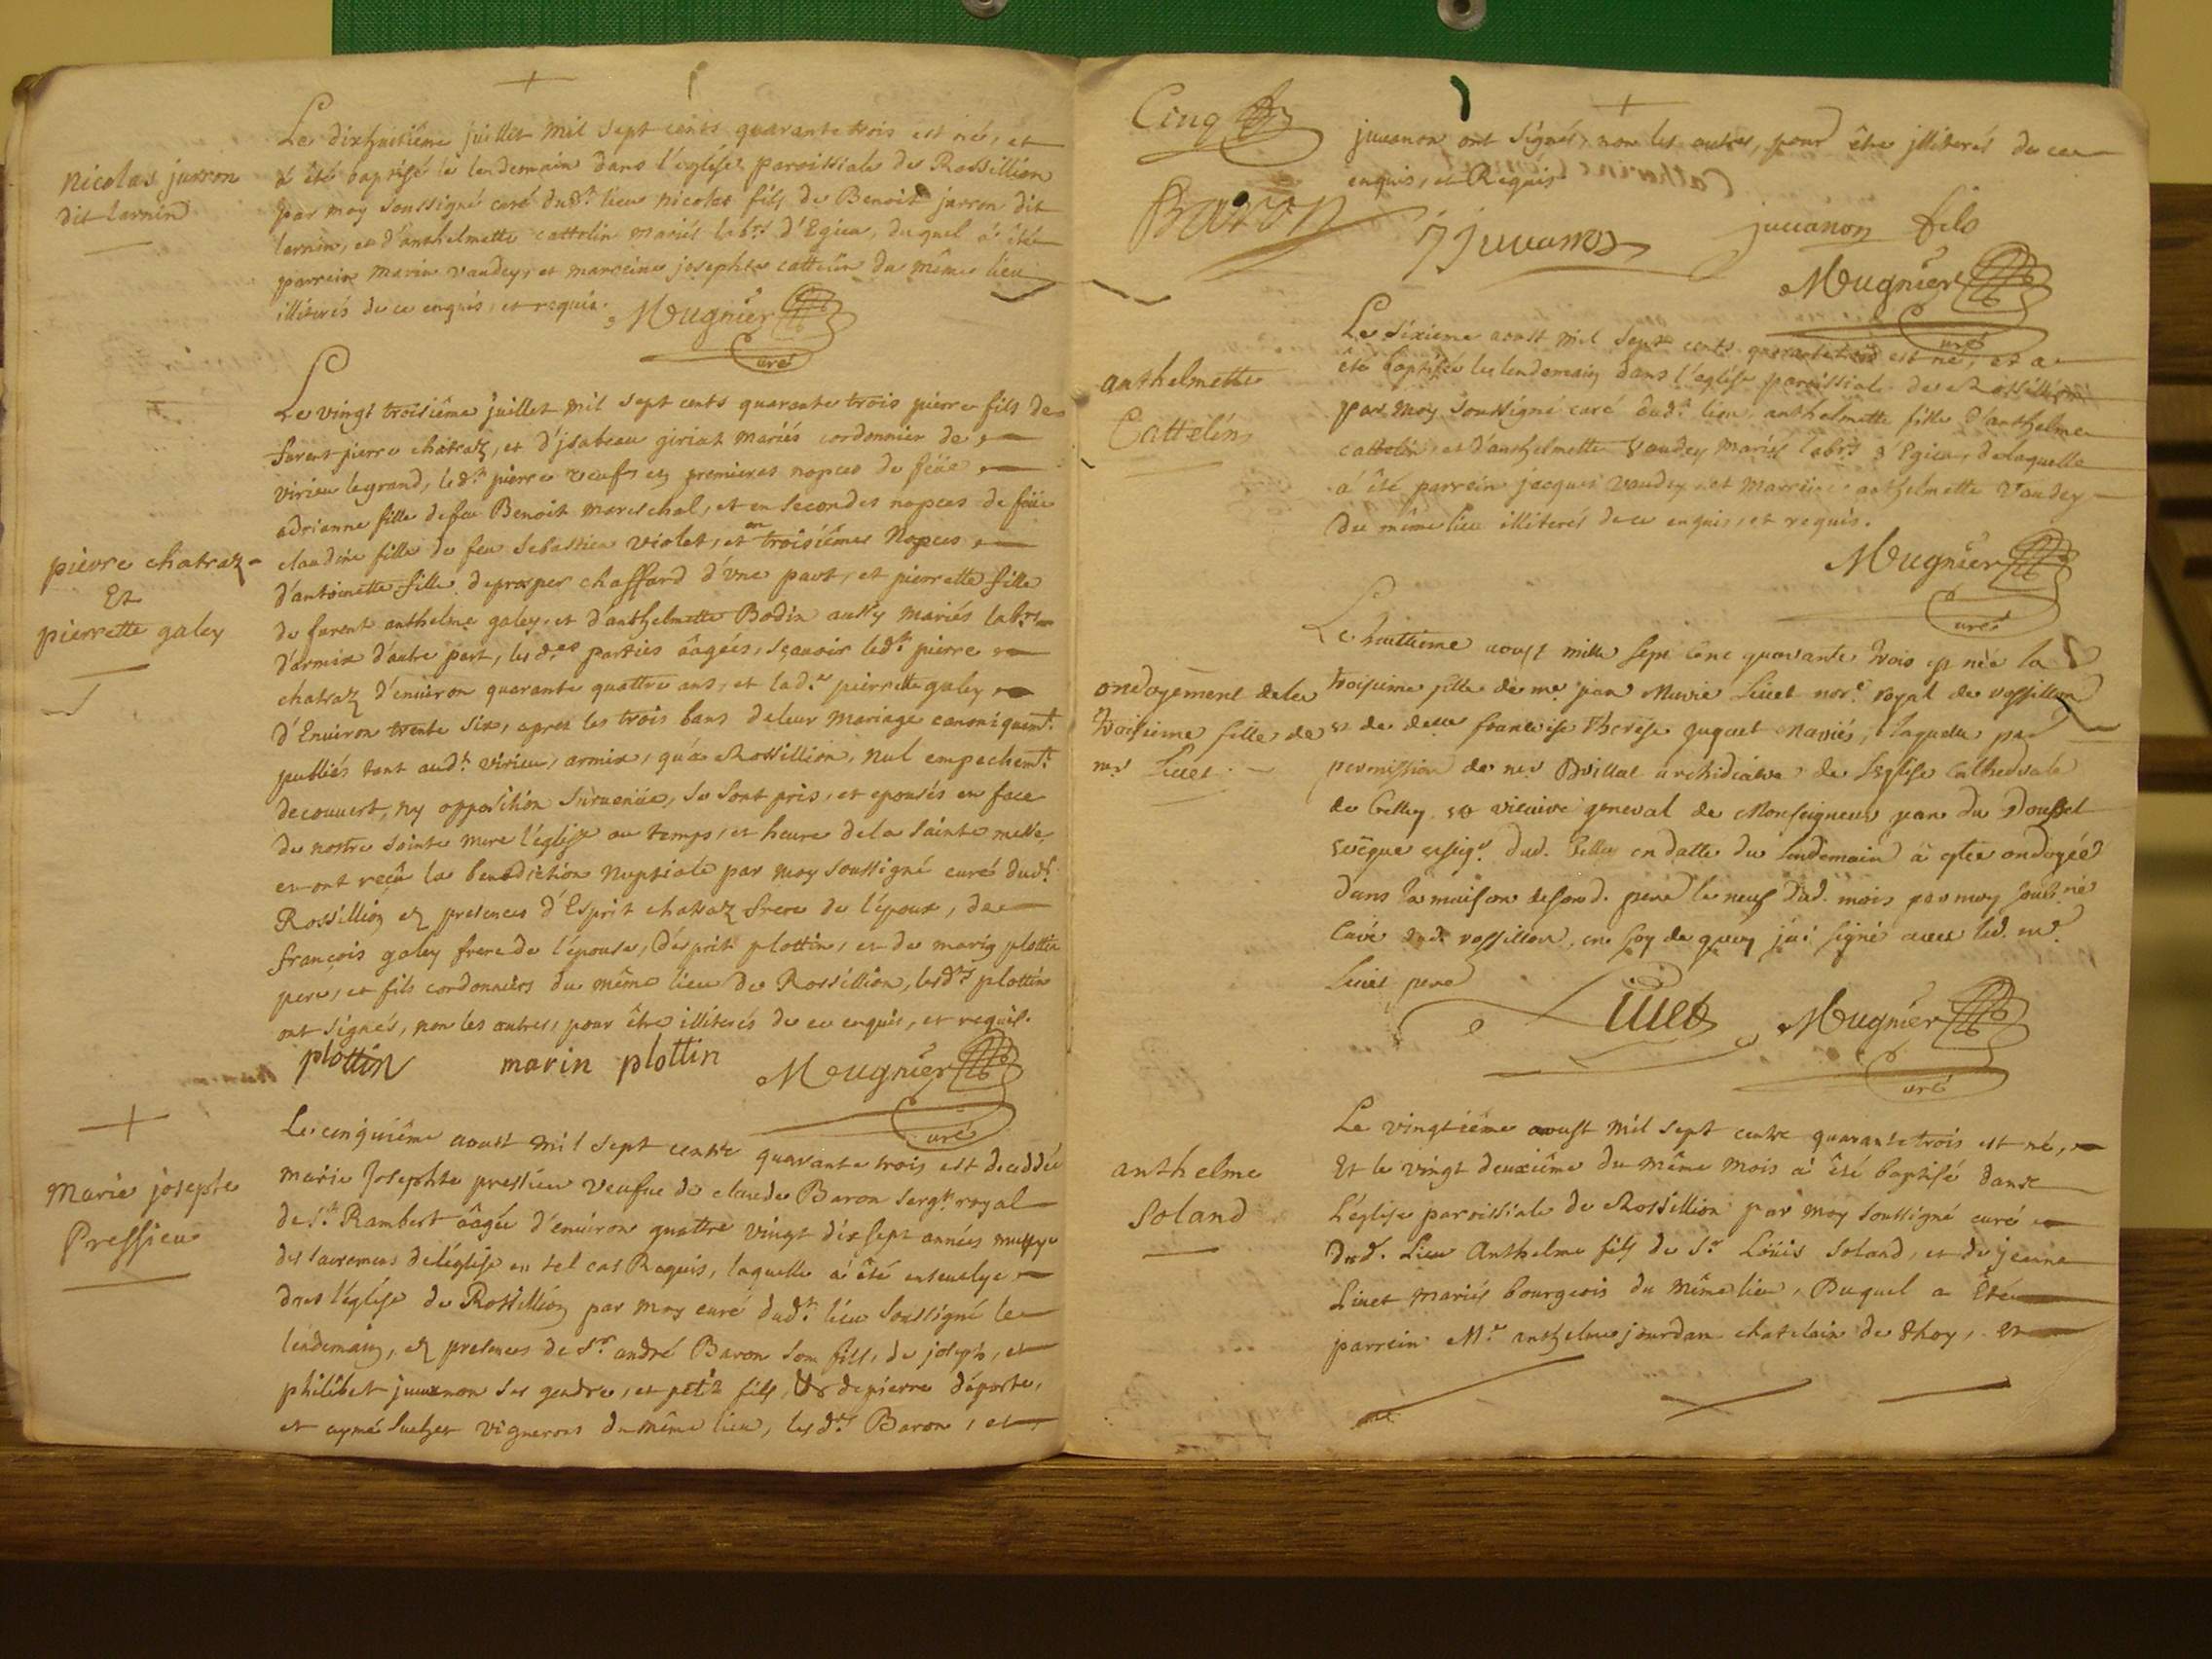 nicolas jarron
dit larnin
Le dixhuitième juillet mil sept cents quarante trois est né, et
à été baptisé le lendemain dans l'église paroissiale de Rossillion
par moy soussigné curé dudt lieu nicolas fils de Benoit jarron dit
larnin, et d'anthelmette cattelin mariés labrs d'Egieu, duquel à été
parrein marin vaudey, et marreine josephte cattelin du même lieu
illiterés de ce enquis, et requis. Mugnier
curé
pierre chatraz
Et
pierrette galey
Le vingt troisième juillet mil sept cents quarante trois pierre fils de
furent pierre chatraz, et d'jsabeau giriat mariés cordonnier de
virieu legrand, ledt pierre veuf en premieres nopces de feüe
adrianne fille de feu Benoit mareschal, et en secondes nopces de feüe
claudine fille de feu sebastien violet, et en troisièmes Nopces
d'antoinette fille de prosper chaffard d'vne part, et pierrette fille
de furent anthelme galey, et d'anthelmette Bodin aussy mariés labrs
d'armix d'autre part, lesdes parties âagées, sçavoir ledt pierre
chatraz d'enuiron quarante quattre ans, et lade pierrette galey
d'Enuiron trente six, apres les trois bans de leur mariage canoniquemt
publiés tant audt virieu, armix, qu'a Rossillion, nul empechemt
decouvert, ny opposition suruenüe, se sont pris, et epousés en face
de nostre sainte mere l'église au temps, et heure de la sainte messe,
et ont reçû la benediction nuptiale par moy soussigné curé dudt
Rossillion en presences d'Esprit chatraz frere de l'époux, de
françois galey frere de l'épouse, d'esprit plottin, et de marin plottin
pere, et fils cordonniers du même lieu de Rossillion, lesdts plottin
ont signés, non les autres, pour être illiterés de ce enquis, et requis.
plottin marin plottin Mugnier
curé
Marie josephte
Pressieu
Le cinquième aoust mil sept cents quarante trois est decedée
marie Josephte pressieu veufue de claude Baron sergt royal
de St Rambert âagée d'enuiron quattre vingt dix sept années munye
des sacremens de l'église en tel cas Requis, laquelle à été enseuelye
dans l'église de Rossillion par moy curé dudt lieu soussigné le
lendemain, en presences de Sr andré Baron son fils, de joseph, et
philibert juuanon ses gendre, et petit fils, & de pierre deporte,
et aymé vignerons du même lieu, lesdts Baron, et
Cinq
juuanon ont signés, non les autres, pour être jlliterés de ce
enquis, et Requis
Baron J Juuanon juuanon fils
Mugnier
curé
anthelmette
Cattelin
Le sixieme aoust mil sept cents quarante trois est né, et a
été baptisée le lendemain dans l'église paroissiale de Rossillion
par moy soussigné curé dudt lieu, anthelmette fille d'anthelme
cattelin, et d'anthelmette Vaudey mariés labrs d'Egieu, de laquelle
à été parrein jacques vaudey, et marreine anthelmette vaudey
du même lieu illiterés de ce enquis, et requis.
Mugnier
curé
ondoyement de la
troisieme fille de
me Liuet
Le huitieme aoust mille sept cent quarante trois est née la
troisieme fille de me jean Marie Liuet nore royal de rossillon
et de delle francoise Therese juguet mariés, laquelle par
permission de mr Brillat archidiacre de l'eglise Cathedrale
de Belley et vicaire general de Monseigneur jean du Doussel
evêque et seigr dud. Belley en datte du lendemain à estée ondoyée
dans la maison de sond. pere le neuf dud. mois par moy soussigné
Curé dud. rossillon, en foy de quoy j'ai signé avec led. me
Liuet pere
Liuet Mugnier
curé
anthelme
Soland
Le vingtième aoust mil sept cents quarante trois est né,
Et le vingt deuxième du même mois à été baptisé dans
L'église paroissiale de Rossillion par moy soussigné curé
dudt. Lieu Anthelme fils de Sr Loüis Soland, et de jeanne
Liuet mariés bourgeois du même lieu, Duquel a Eté
parrein Me anthelme jourdan chatelain de thoy, et